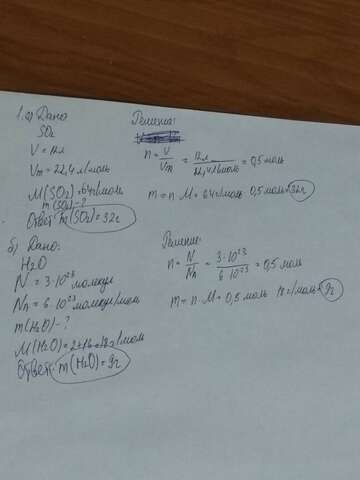 1. а) Дано
SO₂
V = 12л
Vm = 22,4 л/моль
M(SO₂) = 64г/моль
m(SO₂) - ?
Ответ: m(SO₂) = 32г
Решение:
n = V/Vm = 12л/22,4 л/моль = 0,5 моль
m = n · M = 64 г/моль · 0,5 моль = 32г
б) Дано:
H₂O
N = 3 · 10²³ молекул
Nn = 6 · 10²³ молекул/моль
m(H₂O) - ?
M(H₂O) = 2+16=18г/моль
Ответ: m(H₂O) = 9г
Решение:
n = N/Nn = 3 · 10²³/6 · 10²³ = 0,5 моль
m = n · M = 0,5 моль · 18 г/моль = 9г